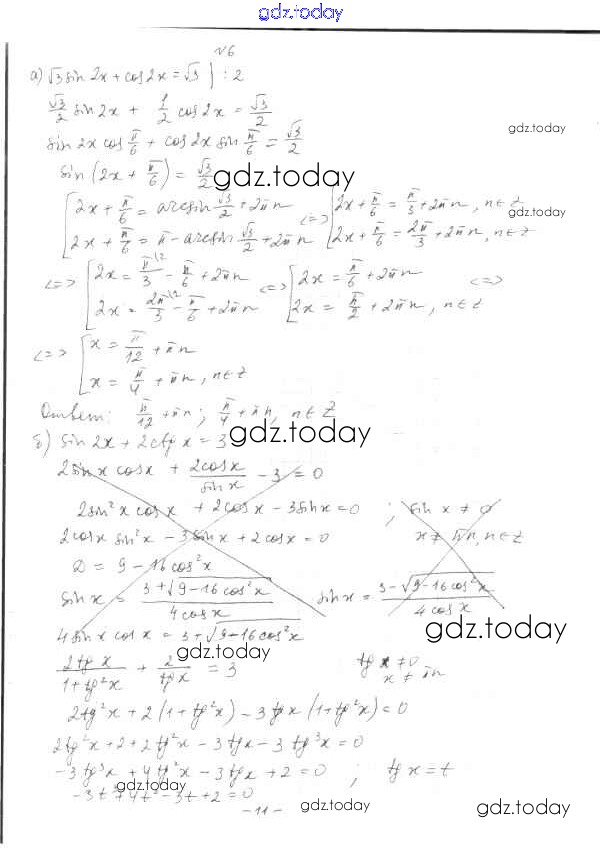 gdz.today
№6
а) √3 sin 2x + cos 2x = √3 | : 2
√3/2 sin 2x + 1/2 cos 2x = √3/2
sin 2x cos π/6 + cos 2x sin π/6 = √3/2
gdz.today
sin (2x + π/6) = √3/2
gdz.today
[ 2x + π/6 = arcsin √3/2 + 2πn <=> [ 2x + π/6 = π/3 + 2πn, n∈Z
gdz.today
2x + π/6 = π - arcsin √3/2 + 2πn 2x + π/6 = 2π/3 + 2πn, n∈Z
<=> [ 2x = π/3 - π/6 + 2πn <=> [ 2x = π/6 + 2πn <=>
2x = 2π/3 - π/6 + 2πn 2x = π/2 + 2πn, n∈Z
<=> [ x = π/12 + πn
x = π/4 + πn, n∈Z
Ответ: π/12 + πn; π/4 + πn, n∈Z
б) sin 2x + 2ctg x = 3
gdz.today
2sin x cos x + 2cos x/sin x - 3 = 0
2sin²x cos x + 2cos x - 3sin x = 0 ; sin x ≠ 0
2cos x sin²x - 3sin x + 2cos x = 0 x ≠ πn, n∈Z
D = 9 - 16cos²x
sin x = 3+√9-16cos²x/4cos x sin x = 3-√9-16cos²x/4cos x
4sin x cos x = 3+√9-16cos²x
gdz.today
gdz.today
2tg x/1+tg²x + 2/tg x = 3 tg x ≠ 0
x ≠ πn
2tg²x + 2(1+tg²x) - 3tg x(1+tg²x) = 0
2tg²x + 2 + 2tg²x - 3tg x - 3tg³x = 0
-3tg³x + 4tg²x - 3tg x + 2 = 0 ; tg x = t
gdz.today
-3t³ + 4t² - 3t + 2 = 0
-11-
gdz.today
gdz.today